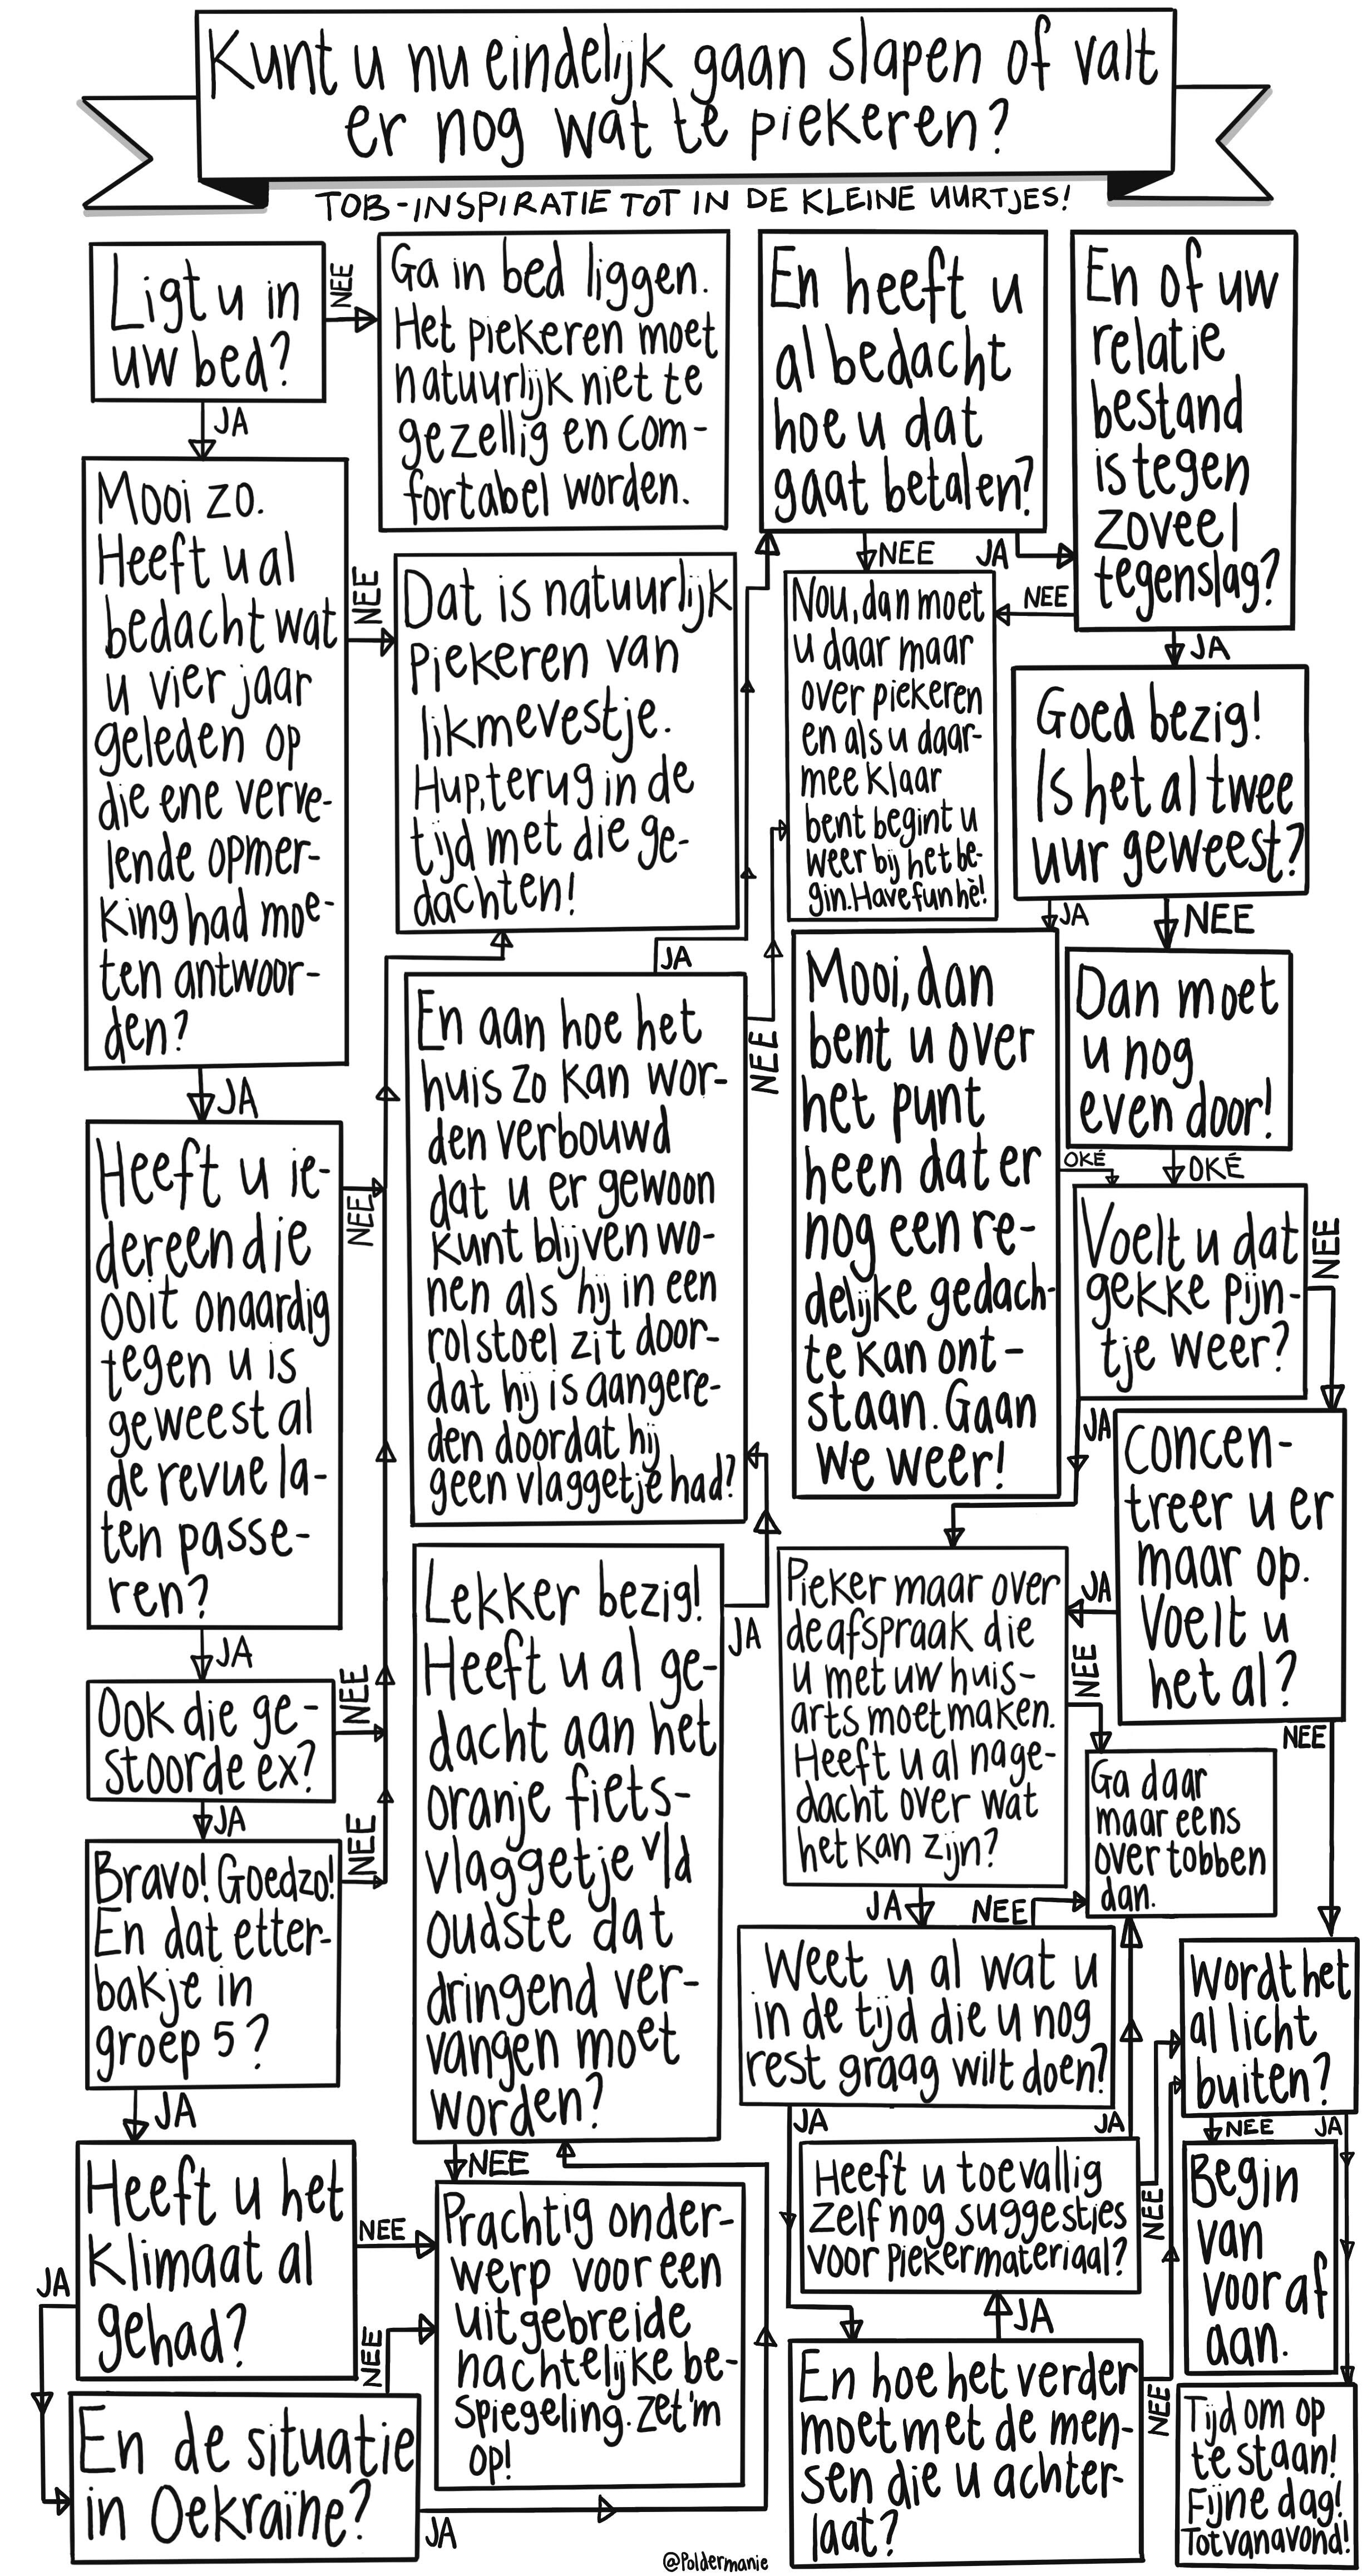 Kunt u nu eindelijk gaan slapen of valt
er nog wat te piekeren?
TOB-INSPIRATIE TOT IN DE KLEINE UURTJES!
Ligt u in
uw bed?
NEE
JA
Ga in bed liggen.
Het piekeren moet
natuurlijk niet te
gezellig en com-
fortabel worden.
Mooi zo.
Heeft u al
bedacht wat
u vier jaar
geleden op
die ene verve-
lende opmer-
king had moe-
ten antwoor-
den?
NEE
JA
Dat is natuurlijk
piekeren van
likmevestje.
Hup, terug in de
tijd met die ge-
dachten!
Heeft u ie-
dereen die
ooit onaardig
tegen u is
geweest al
de revue la-
ten passe-
ren?
NEE
JA
Ook die ge-
stoorde ex?
NEE
JA
Bravo! Goedzo!
En dat etter-
bakje in
groep 5?
NEE
JA
Heeft u het
klimaat al
gehad?
NEE
JA
En de situatie
in Oekraïne?
NEE
JA
Prachtig onder-
werp voor een
uitgebreide
nachtelijke be-
spiegeling. Zet 'm
op!
Lekker bezig!
Heeft u al ge-
dacht aan het
oranje fiets-
vlaggetje v/d
oudste dat
dringend ver-
vangen moet
worden?
NEE
JA
En aan hoe het
huis zo kan wor-
den verbouwd
dat u er gewoon
kunt blijven wo-
nen als hij in een
rolstoel zit door-
dat hij is aangere-
den doordat hij
geen vlaggetje had?
JA
NEE
En heeft u
al bedacht
hoe u dat
gaat betalen?
NEE
JA
En of uw
relatie
bestand
is tegen
zoveel
tegenslag?
NEE
JA
Nou, dan moet
u daar maar
over piekeren
en als u daar-
mee klaar
bent begint u
weer bij het be-
gin. Have fun hè!
Goed bezig!
Is het al twee
uur geweest?
JA
NEE
Mooi, dan
bent u over
het punt
heen dat er
nog een re-
delijke gedach-
te kan ont-
staan. Gaan
we weer!
OKÉ
Dan moet
u nog
even door!
OKÉ
Voelt u dat
gekke pijn-
tje weer?
NEE
JA
Concen-
treer u er
maar op.
Voelt u
het al?
JA
NEE
Pieker maar over
de afspraak die
u met uw huis-
arts moet maken.
Heeft u al nage-
dacht over wat
het kan zijn?
NEE
JA
Ga daar
maar eens
over tobben
dan.
Weet u al wat u
in de tijd die u nog
rest graag wilt doen?
NEE
JA
Heeft u toevallig
zelf nog suggesties
voor piekermateriaal?
JA
NEE
En hoe het verder
moet met de men-
sen die u achter-
laat?
JA
NEE
Wordt het
al licht
buiten?
NEE
JA
Begin
van
voor af
aan.
Tijd om op
te staan!
Fijne dag!
Tot vanavond!
@Poldermanie